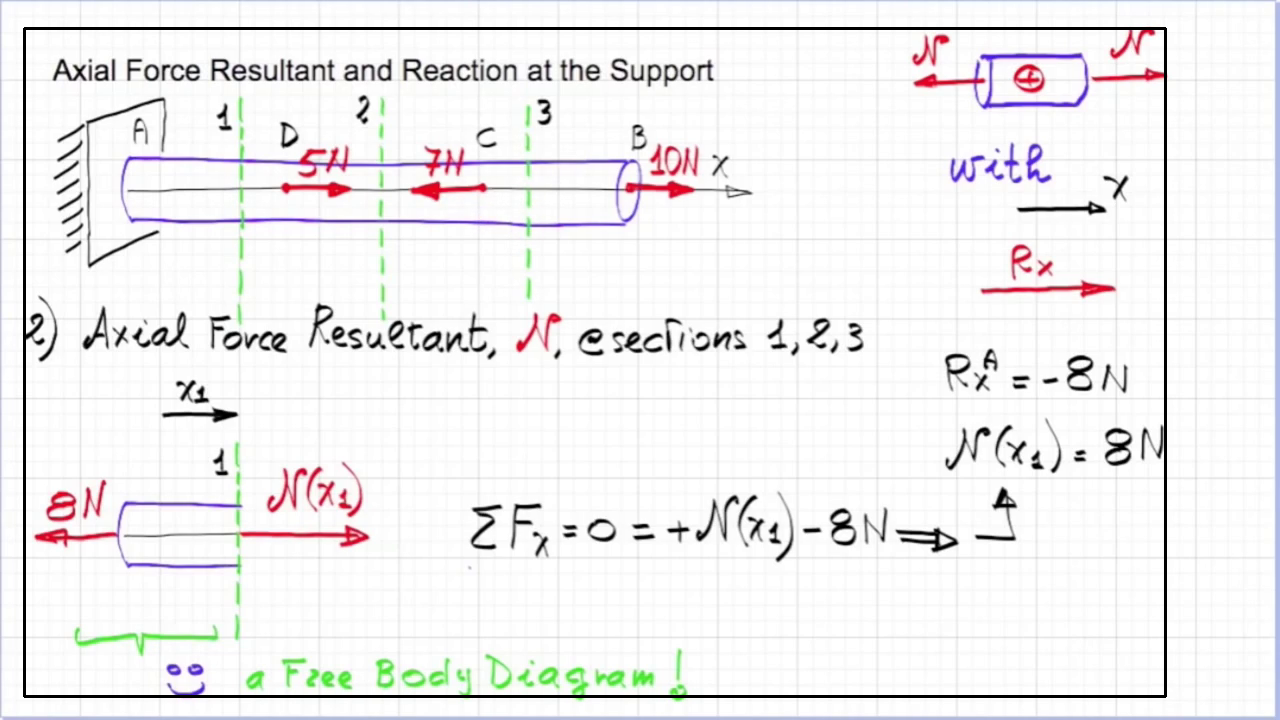 Axial Force Resultant and Reaction at the Support
N N
A 1 D 2 C 3 B
5N 7N 10N x
with
x
Rx
2) Axial Force Resultant, N, @sections 1,2,3
RxA = -8N
x1
N(x1) = 8N
1
8N N(x1)
ΣFx = 0 = +N(x1) - 8N ⇒
a Free Body Diagram!